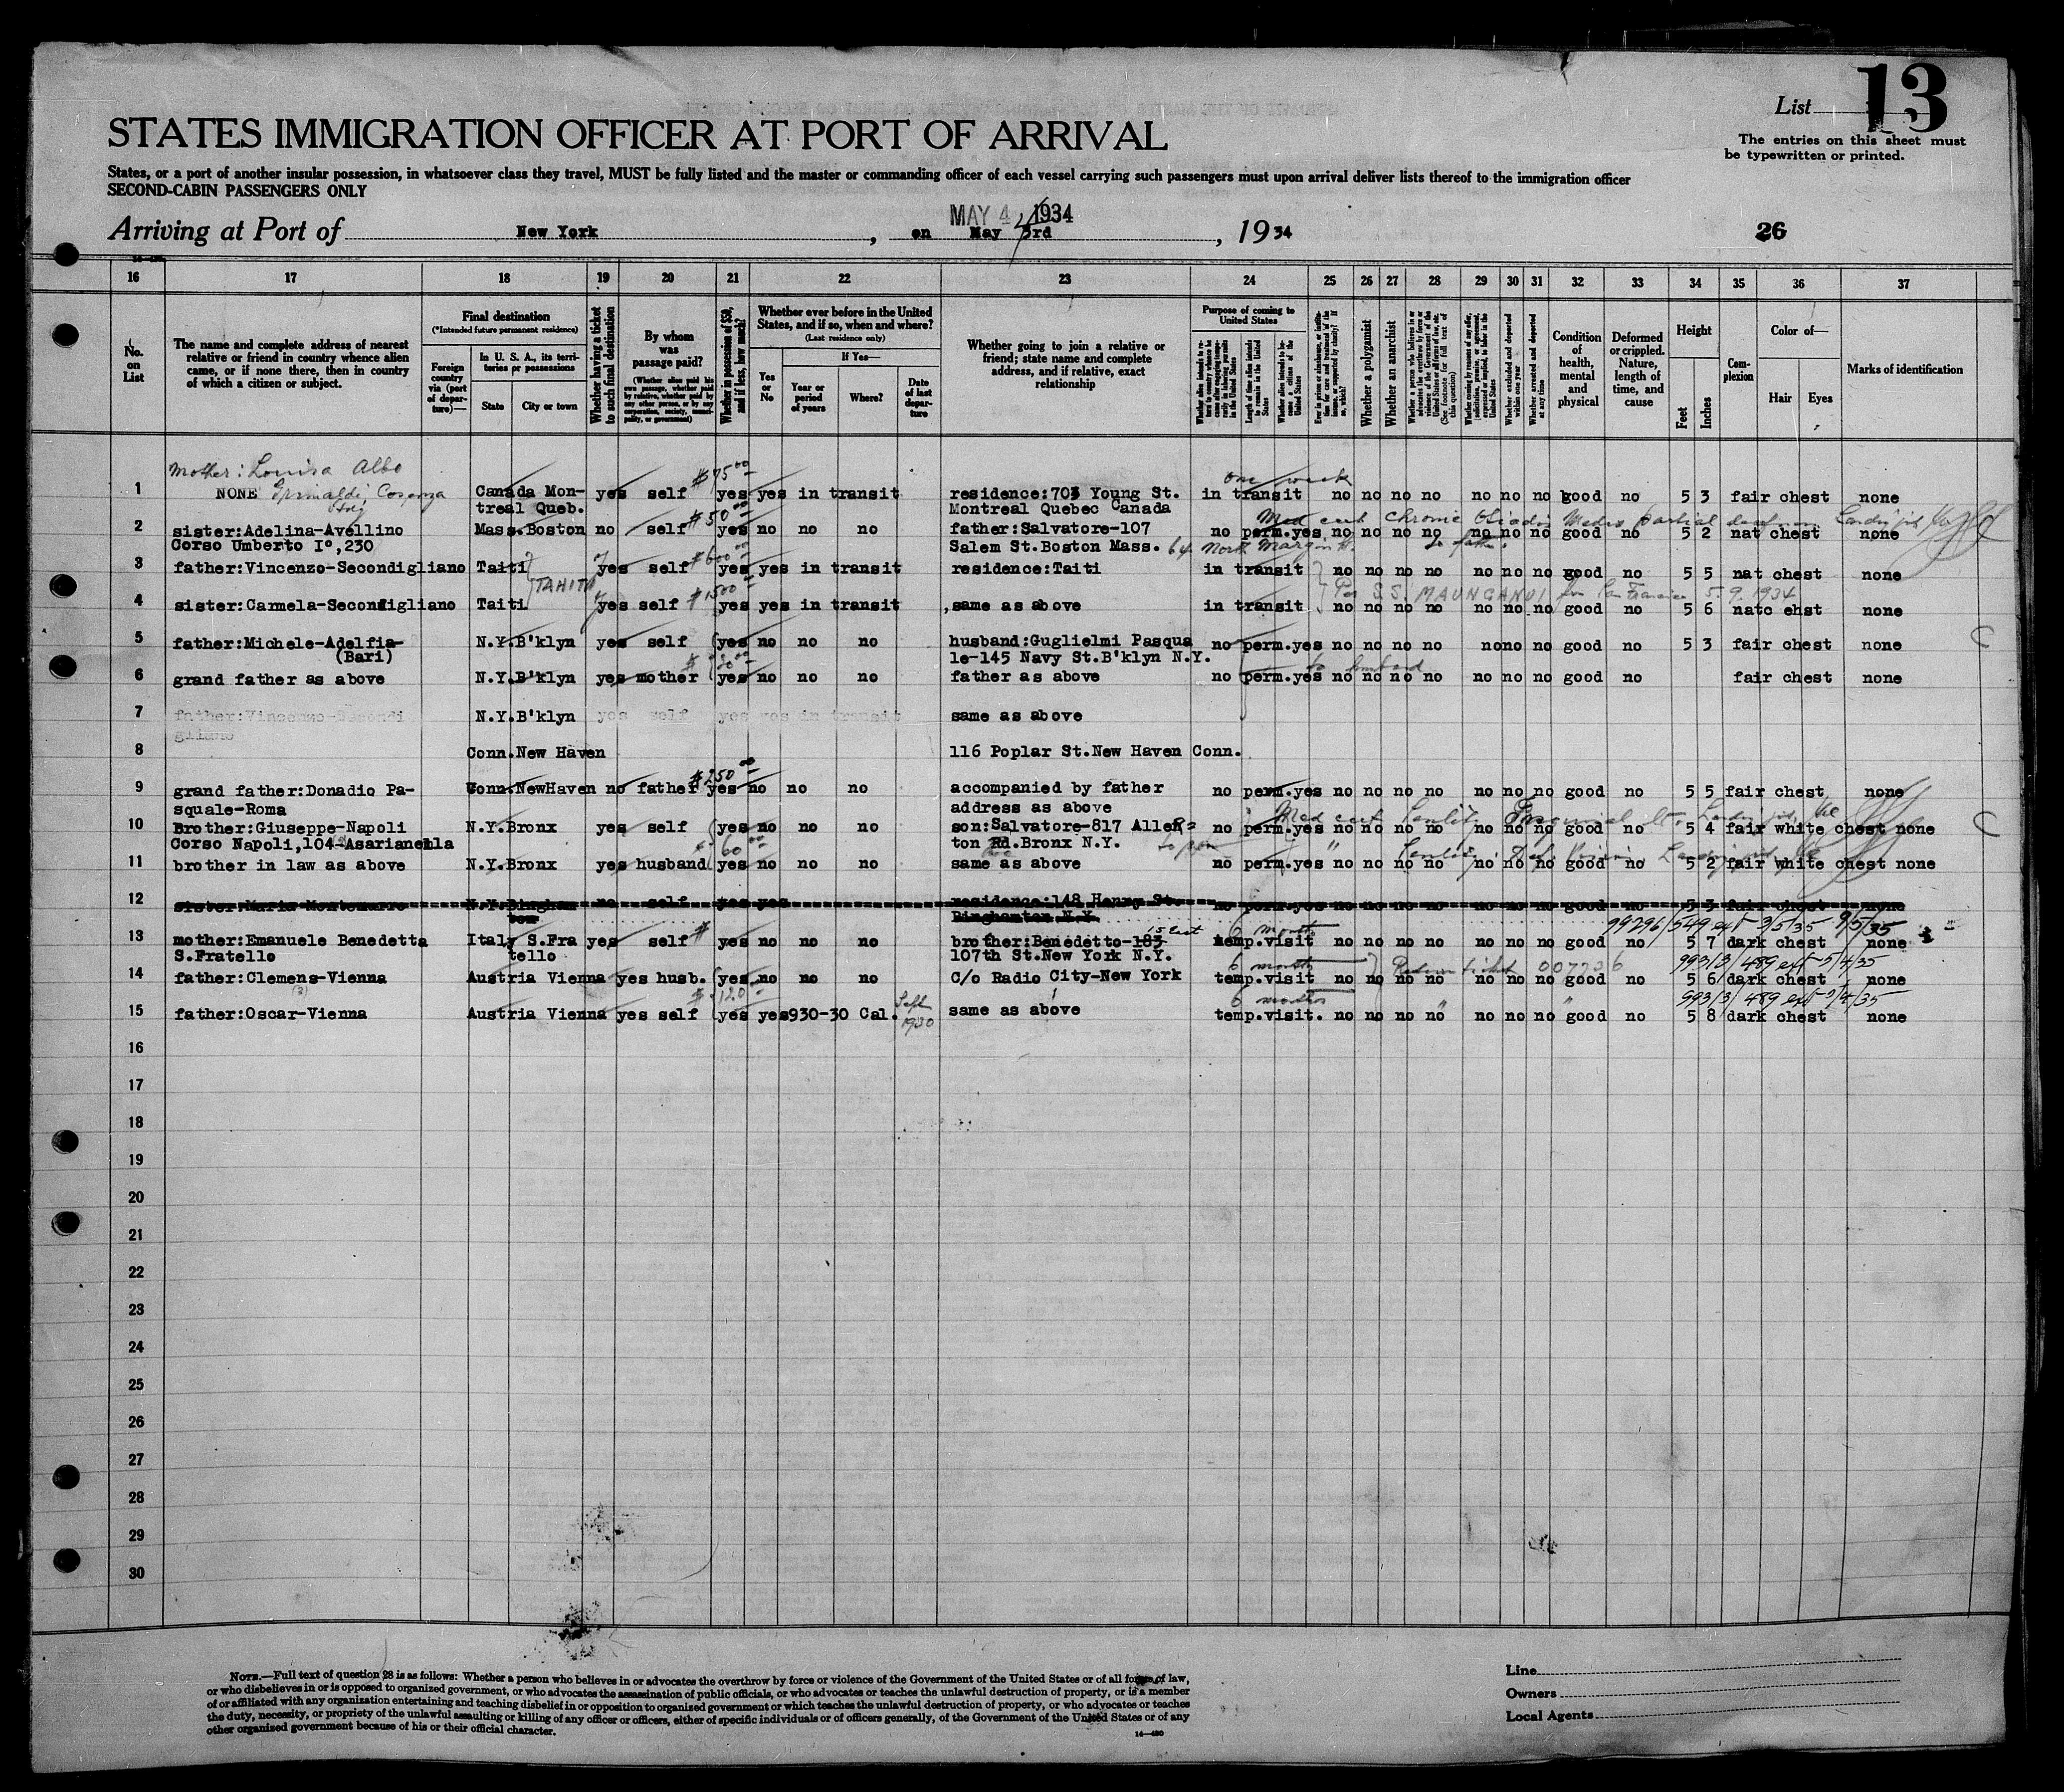 List 13
The entries on this sheet must
be typewritten or printed.
STATES IMMIGRATION OFFICER AT PORT OF ARRIVAL
States, or a port of another insular possession, in whatsoever class they travel, MUST be fully listed and the master or commanding officer of each vessel carrying such passengers must upon arrival deliver lists thereof to the immigration officer
SECOND-CABIN PASSENGERS ONLY
MAY 4 1934
Arriving at Port of New York, on May 3rd, 1934
26
16 17 18 19 20 21 22 23 24 25 26 27 28 29 30 31 32 33 34 35 36 37
No. on List
The name and complete address of nearest relative or friend in country whence alien came, or if none there, then in country of which a citizen or subject.
Final destination
(*Intended future permanent residence)
Foreign country via (port of departure)—
In U. S. A., its territories or possessions
State City or town
Whether having a ticket to such final destination
By whom was passage paid?
(Whether alien paid his own passage, whether paid by relative, whether paid by any other person, or by any corporation, society, municipality, or government)
Whether in possession of $50, and if less, how much?
Whether ever before in the United States, and if so, when and where?
(Last residence only)
Yes or No
If Yes—
Year or period of years
Where?
Date of last departure
Whether going to join a relative or friend; state name and complete address, and if relative, exact relationship
Purpose of coming to United States
Length of time alien intends to remain in the United States
Whether alien intends to become a citizen of the United States
Whether a polygamist
Whether an anarchist
Whether excluded and deported within one year
Whether arrested and deported at any time
Condition of health, mental and physical
Deformed or crippled. Nature, length of time, and cause
Height
Feet Inches
Complexion
Color of—
Hair Eyes
Marks of identification
Mother: Louisa Albo $75.00 one week
1 NONE Grimaldi, Cosenza Canada Mon- yes self yes yes in transit residence:703 Young St. in transit no no no no no no no good no 5 3 fair chest none
Italy treal Queb. Montreal Quebec Canada
$50.00 Med cert Chronic Media partial
2 sister:Adelina-Avellino Mass.Boston no self yes no no no father:Salvatore-107 no perm.yes no no no no no no no good no 5 2 nat chest none
Corso Umberto I°,230 Salem St.Boston Mass. 64 North Margin St. to father.
$600.00
3 father:Vincenzo-Secondigliano Taiti yes self yes yes in transit residence:Taiti in transit no no no no no no no good no 5 5 nat chest none
TAHITI $1500 Per S.S. MAUNGANUI for San Francisco 5.9.1934
4 sister:Carmela-Secondigliano Taiti yes self yes yes in transit same as above in transit no no no no no no no good no 5 6 natc ehst none
5 father:Michele-Adelfia- N.Y.B'klyn yes self yes no no no husband:Guglielmi Pasqua no perm.yes no no no no nono no good no 5 3 fair chest none
(Bari) le-145 Navy St.B'klyn N.Y.
to husband
6 grand father as above N.Y.B'klyn yes mother yes no no no father as above no perm.yes no no no no no no no good no fair chest none
7 father:Vincenzo-Secondi N.Y.B'klyn yes self yes yes in transit same as above
gliano
8 Conn.New Haven 116 Poplar St.New Haven Conn.
$250.00
9 grand father:Donadio Pa- Conn.NewHaven no father yes no no no accompanied by father no perm.yes no no no no no no no good no 5 5 fair chest none
squale-Roma address as above
Med cert Senility
10 Brother:Giuseppe-Napoli N.Y.Bronx yes self yes no no no son:Salvatore-817 Aller- no perm.yes no no no no no no no good no 5 4 fair white chest none
Corso Napoli,104-Asarianella 60.00 ton Rd.Bronx N.Y. to son
11 brother in law as above N.Y.Bronx yes husband yes no no no same as above no perm.yes no no no no no no no good no 5 2 fair white chest none
12 sister:Maria Montemurro N.Y.Bingham no self yes yes residence:148 Henry St. no perm.yes no no no no no no no good no 5 3 fair chest none
ton Binghamton N.Y.
15 East 6 months 99296/549 ext 3/5/35 9/5/35
13 mother:Emanuele Benedetta Italy S.Fra yes self yes no no no brother:Benedetto-183 temp.visit no no no no no no no good no 5 7 dark chest none
S.Fratello tello 107th St.New York N.Y.
6 months Return ticket 007736 99313/489 ext 5/4/35
14 father:Clemens-Vienna Austria Vienna yes husb. yes no no no C/o Radio City-New York temp.visit no no no no no no no good no 5 6 dark chest none
$120 Sept 1930 6 months 99313/489 ext 5/4/35
15 father:Oscar-Vienna Austria Vienna yes self yes yes930-30 Cal. same as above temp.visit. no no no no no no no good no 5 8 dark chest none
16
17
18
19
20
21
22
23
24
25
26
27
28
29
30
NOTE.—Full text of question 28 is as follows: Whether a person who believes in or advocates the overthrow by force or violence of the Government of the United States or of all forms of law,
or who disbelieves in or is opposed to organized government, or who advocates the assassination of public officials, or who advocates or teaches the unlawful destruction of property, or is a member
of or affiliated with any organization entertaining and teaching disbelief in or opposition to organized government or which teaches the unlawful destruction of property, or who advocates or teaches
the duty, necessity, or propriety of the unlawful assaulting or killing of any officer or officers, either of specific individuals or of officers generally, of the Government of the United States or of any
other organized government because of his or their official character.
14—480
Line
Owners
Local Agents